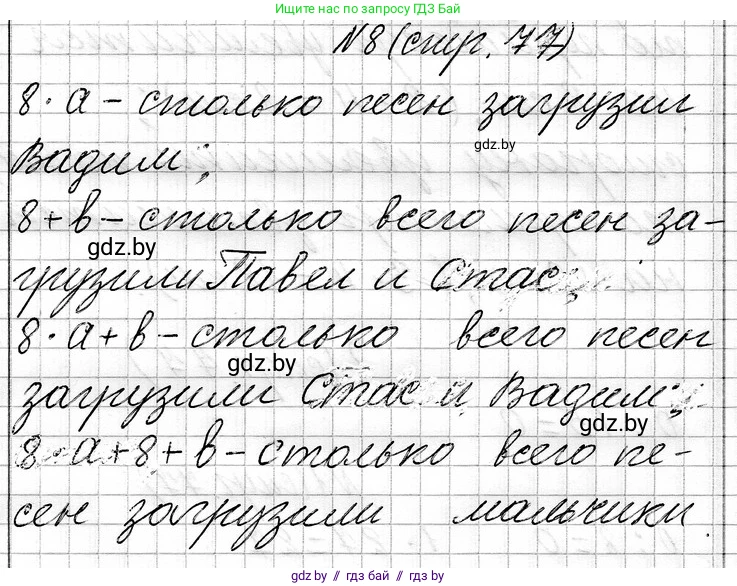 Ищите нас по запросу ГДЗ Бай
№8 (стр. 77)
8 · а – столько песен загрузил
gdz.by
Вадим;
8 + в – столько всего песен за-
gdz.by
грузили Павел и Стас;
8 · а + в – столько всего песен
gdz.by
загрузили Стас и Вадим;
gdz.by
8 · а + 8 + в – столько всего пе-
сен загрузили мальчики.
gdz.by // гдз бай // gdz.by